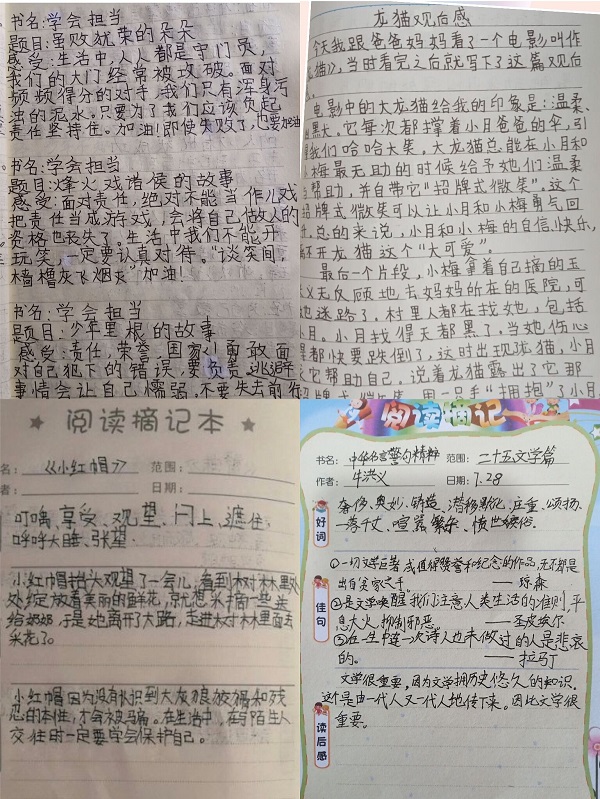 书名:学会担当
题目:虽败犹荣的朵朵
感受:生活中,人人都是守门员,
我们的大门经常被攻破。面对
频频得分的对手,我们只有浑身污
浊的泥水。只要为了我们应该负起
责任坚持住。加油!即使失败了,也要加油
书名:学会担当
题目:烽火戏诸侯的故事
感受:面对责任,绝对不能当作儿戏
把责任当成游戏,会将自己做人的
资格也丧失了。生活中我们不能开
玩笑,一定要认真对待。“谈笑间,
樯橹灰飞烟灭”加油!
书名:学会担当
题目:少年里根的故事
感受:责任,荣誉,国家,勇敢面
对自己犯下的错误,要负责,逃避
事情会让自己懦弱,不要失去前
龙猫观后感
今天我跟爸爸妈妈看了一个电影叫作
龙猫》,当时看完之后就写下了这篇观后
电影中的大龙猫给我的印象是:温柔、
黑大。它每次都撑着小月爸爸的伞,引
我们哈哈大笑。大龙猫总能在小月和
小梅最无助的时候给予她们温柔
帮助,并自带它“招牌式微笑”。这个
招牌式微笑可以让小月和小梅勇气回
。总的来说,小月和小梅的自信、快乐,
离不开龙猫这个“大可爱”。
最后一个片段,小梅拿着自己摘的玉
义无反顾地去妈妈所在的医院,可
她迷路了。村里人都在找她,包括
月。小月找得天都黑了。当她伤心
都快要跌倒了,这时出现龙猫,小月
它帮助自己。说着龙猫露出了它那
招牌式微笑,用一只手“拥抱”了小月
阅读摘记本
名: 《小红帽》 范围:
者: 日期:
叮嘱、享受、观望、闩上、遮住、
呼呼大睡、张望
小红帽抬头观望了一会儿,看到树林里处
处绽放着美丽的鲜花,就想采摘一些送
给奶奶,于是她离开了大路,走进树林里面去
采花了。
小红帽因为没有认识到大灰狼狡猾和残
忍的本性,才会被骗。在生活中,在与陌生人
交往时一定要学会保护自己。
阅读摘记
书名: 中华名言警句精粹 范围: 二十五文学篇
作者: 牛洪义 日期: 7.28
好词
奢侈、奥妙、铸造、潜移默化、庄重、颂扬、
一落千丈、喧嚣、繁杂、愤世嫉俗。
佳句
①一切文学巨著,或值得赞誉和纪念的作品,无不都是
出自实家之手。 ——琼森
②是文学唤醒我们注意人类生活的准则,平
息大火,抑制邪恶。 ——圣皮埃尔
③在一生中连一次诗人也未做过的人是悲哀
的。 ——拉马丁
读后感
文学很重要,因为文学拥历史悠久的知识,
这个是由一代人又一代人地传下来。因此文学很
重要。